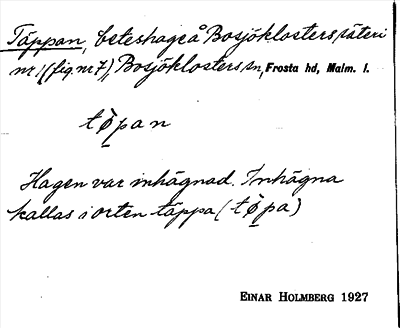 Täppan, beteshage å Bosjöklosters säteri
nr 1 (fig. nr 7), Bosjöklosters sn, Frosta hd, Malm. l.
tø̀pan
Hagen var inhägnad. Inhägna
kallas i orten täppa (tø̀pa)
EINAR HOLMBERG 1927